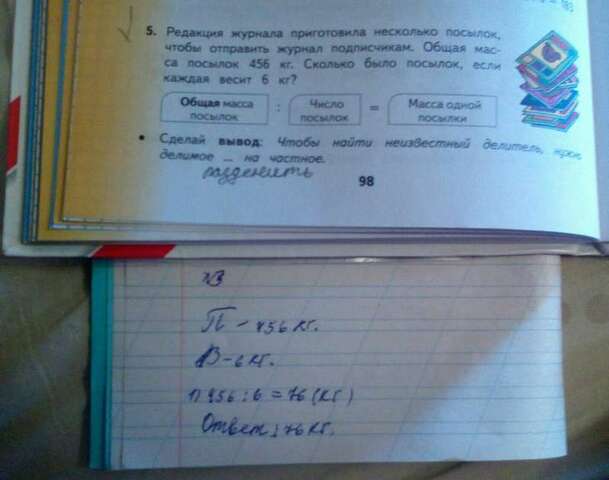 = 183
5. Редакция журнала приготовила несколько посылок,
чтобы отправить журнал подписчикам. Общая мас-
са посылок 456 кг. Сколько было посылок, если
каждая весит 6 кг?
Общая масса посылок : Число посылок = Масса одной посылки
• Сделай вывод: Чтобы найти неизвестный делитель, нужно
делимое ... на частное.
разделить
98
П - 456 кг.
В - 6 кг.
1) 456 : 6 = 76 (кг)
Ответ: 76 кг.